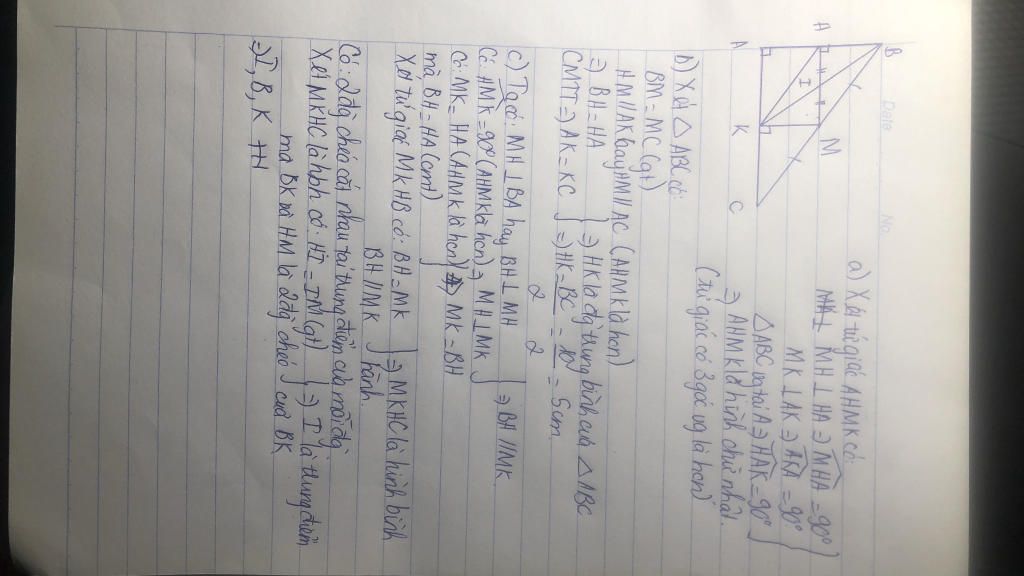 Date No.
B
A
M
I
A
K
C
a) Xét tứ giác AHMK có:
MH ⊥ HA ⇒ MHA = 90°
MK ⊥ AK ⇒ AKA = 90°
△ABC vg tại A ⇒ HAK = 90°
⇒ AHMK là hình chữ nhật.
(tứ giác có 3 góc vg là hcn)
b) Xét △ ABC có:
BM = MC (gt)
HM//AK hay HM//AC (AHMK là hcn)
⇒ BH = HA
CMTT ⇒ AK = KC } ⇒ HK là đg trung bình của △ABC
⇒ HK = BC/2 = 10/2 = 5cm
c) Ta có: MH ⊥ BA hay BH ⊥ MH
Có: HMK = 90° (AHMK là hcn) ⇒ MH ⊥ MK } ⇒ BH//MK
Có: MK = HA (AHMK là hcn)
mà BH = HA (cmt) } ⇒ MK = BH
Xét tứ giác MKHB có: BH = MK
BH//MK } ⇒ MKHC là hình bình hành.
Có: 2 đg chéo cắt nhau tại trung điểm của mỗi đg
Xét MKHC là hbh có: HI = IM (gt)
mà BK và HM là 2 đg chéo } ⇒ I là trung điểm của BK
⇒ I, B, K TH